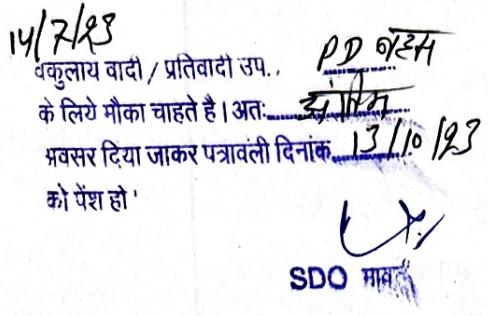 14/7/23
वकुलाय वादी / प्रतिवादी उप.. PD बहस
के लिये मौका चाहते है। अतः....अंतिम....
अवसर दिया जाकर पत्रावली दिनांक....13/10/23
को पेंश हो '
SDO मावली